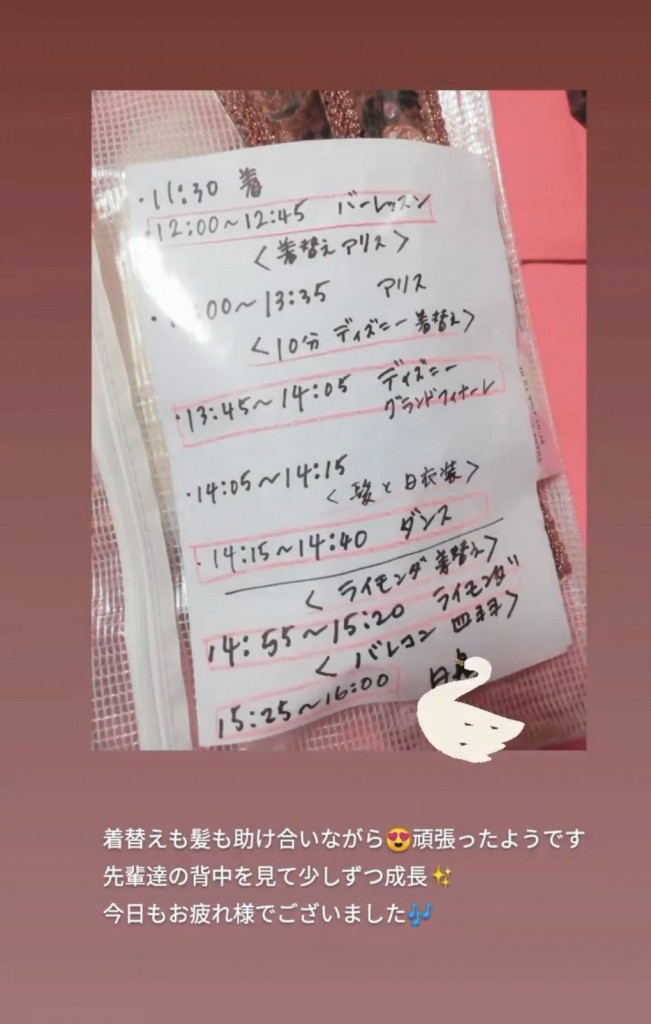 ・11:30 着
・12:00～12:45 バーレッスン
〈着替え アリス〉
00～13:35 アリス
〈10分 ディズニー着替え〉
・13:45～14:05 ディズニー
グランドフィナーレ
・14:05～14:15
〈髪と白衣装〉
・14:15～14:40 ダンス
〈ライモンダ着替え〉
14:55～15:20 ライモンダ
〈バレコン
15:25～16:00
着替えも髪も助け合いながら😍頑張ったようです
先輩達の背中を見て少しずつ成長✨
今日もお疲れ様でございました🎶